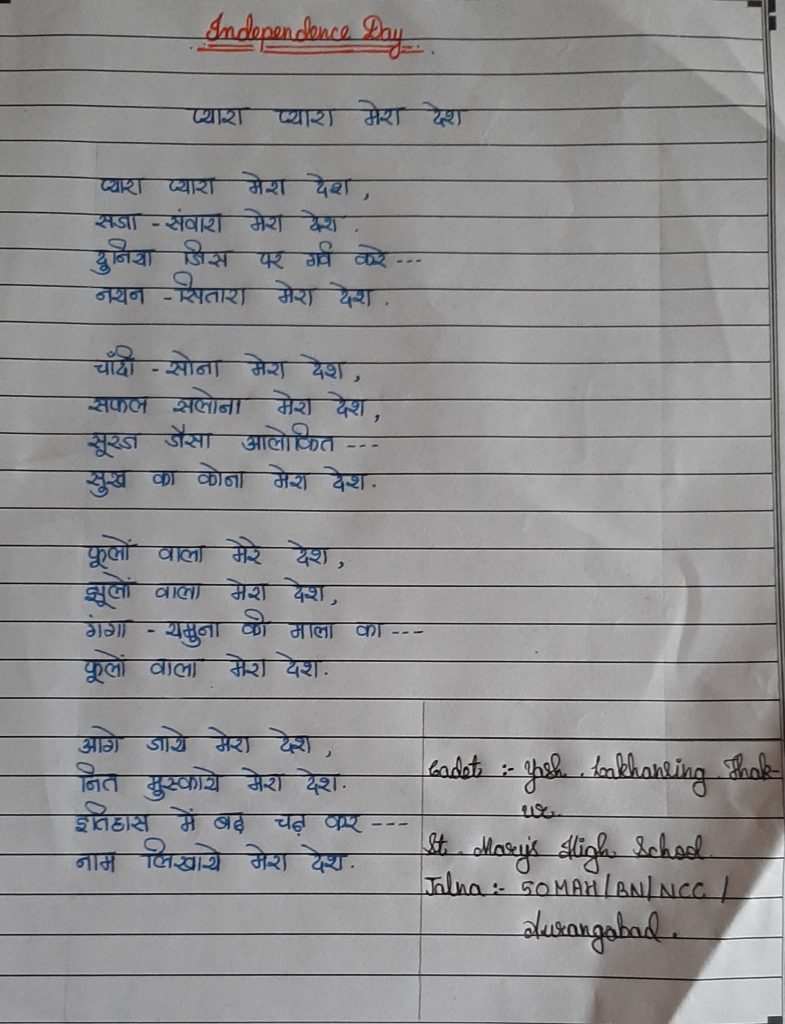 Independence Day
प्यारा प्यारा मेरा देश
प्यारा प्यारा मेरा देश,
सजा - संवारा मेरा देश.
दुनिया जिस पर गर्व करे ---
नयन - सितारा मेरा देश.
चाँदी - सोना मेरा देश,
सफल सलोना मेरा देश,
सूरज जैसा आलोकित ---
सुख का कोना मेरा देश.
फूलों वाला मेरे देश,
झूलों वाला मेरा देश,
गंगा - यमुना की माला का ---
फूलों वाला मेरा देश.
आगे जाये मेरा देश,
नित मुस्काये मेरा देश.
इतिहास में बढ़ चढ़ कर ---
नाम लिखाये मेरा देश.
Cadet :- Yash . Lakhansing Thak-
ur.
St. Mary's High School.
Jalna :- 50MAH/BN/NCC /
Aurangabad.